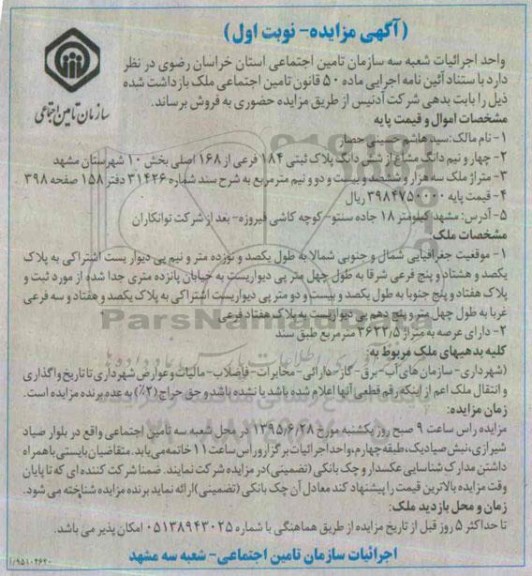 (آگهی مزایده- نوبت اول)
سازمان تامین اجتماعی
واحد اجرائیات شعبه سه سازمان تامین اجتماعی استان خراسان رضوی در نظر
دارد با ستناد آئین نامه اجرایی ماده ۵۰ قانون تامین اجتماعی ملک بازداشت شده
ذیل را بابت بدهی شرکت آدنیس از طریق مزایده حضوری به فروش برساند.
مشخصات اموال و قیمت پایه
۱- نام مالک: سیدهاشم حسنی
۲- چهار و نیم دانگ مشاع از شش دانگ پلاک ثبتی ۱۸۴ فرعی از ۱۶۸ اصلی بخش ۱۰ شهرستان مشهد
۳- متراژ ملک سه هزار و ششصد و بیست و دو و نیم مترمربع به شرح سند شماره ۳۱۴۲۶ دفتر ۱۵۸ صفحه ۳۹۸
۴- قیمت پایه ۳۹۸۴۷۵۰۰۰۰ ریال
۵- آدرس: مشهد کیلومتر ۱۸ جاده سنتو- کوچه کاشی فیروزه- بعد از شرکت توانکاران
مشخصات ملک
۱- موقعیت جغرافیایی شمال و جنوبی شمالا به طول یکصد و نوزده متر و نیم پی دیوار یست اشتراکی به پلاک
یکصد و هشتاد و پنج فرعی شرقا به طول چهل متر پی دیواریست به خیابان پانزده متری جدا شده از مورد ثبت و
پلاک هفتاد و پنج جنوبا به طول یکصد و بیست و دو متر پی دیواریست اشتراکی به پلاک یکصد و هفتاد و سه فرعی
غربا به طول چهل متر و پنج دهم پی دیواریست به پلاک هفتاد فرعی
۲- دارای عرصه به متراژ ۳۶۲۲,۵ متر مربع طبق سند
کلیه بدهیهای ملک مربوط به:
(شهرداری- سازمان های آب- برق- گاز- دارائی- مخابرات- فاضلاب- مالیات و عوارض شهرداری تا تاریخ واگذاری
و انتقال ملک اعم از اینکه رقم قطعی آنها اعلام شده باشد یا نشده باشد و حق حراج (۲٪) به عده برنده مزایده است.
زمان مزایده:
مزایده راس ساعت ۹ صبح روز یکشنبه مورخ ۱۳۹۵/۶/۲۸ در محل شعبه سه تامین اجتماعی واقع در بلوار صیاد
شیرازی، نبش صیادیک، طبقه چهارم، واحد اجرائیات برگزار و راس ساعت ۱۱ خاتمه می یابد. متقاضیان بایستی با همراه
داشتن مدارک شناسایی عکسدار و چک بانکی (تضمینی) در مزایده شرکت نمایند. ضمنا شرکت کننده ای که تا پایان
وقت مزایده بالاترین قیمت را پیشنهاد کند معادل آن چک بانکی (تضمینی) ارائه نماید برنده مزایده شناخته می شود.
زمان و محل بازدید ملک:
تا حداکثر ۵ روز قبل از تاریخ مزایده از طریق هماهنگی با شماره ۰۵۱۳۸۹۴۳۰۲۵ امکان پذیر می باشد.
اجرائیات سازمان تامین اجتماعی- شعبه سه مشهد
ParsNamadData